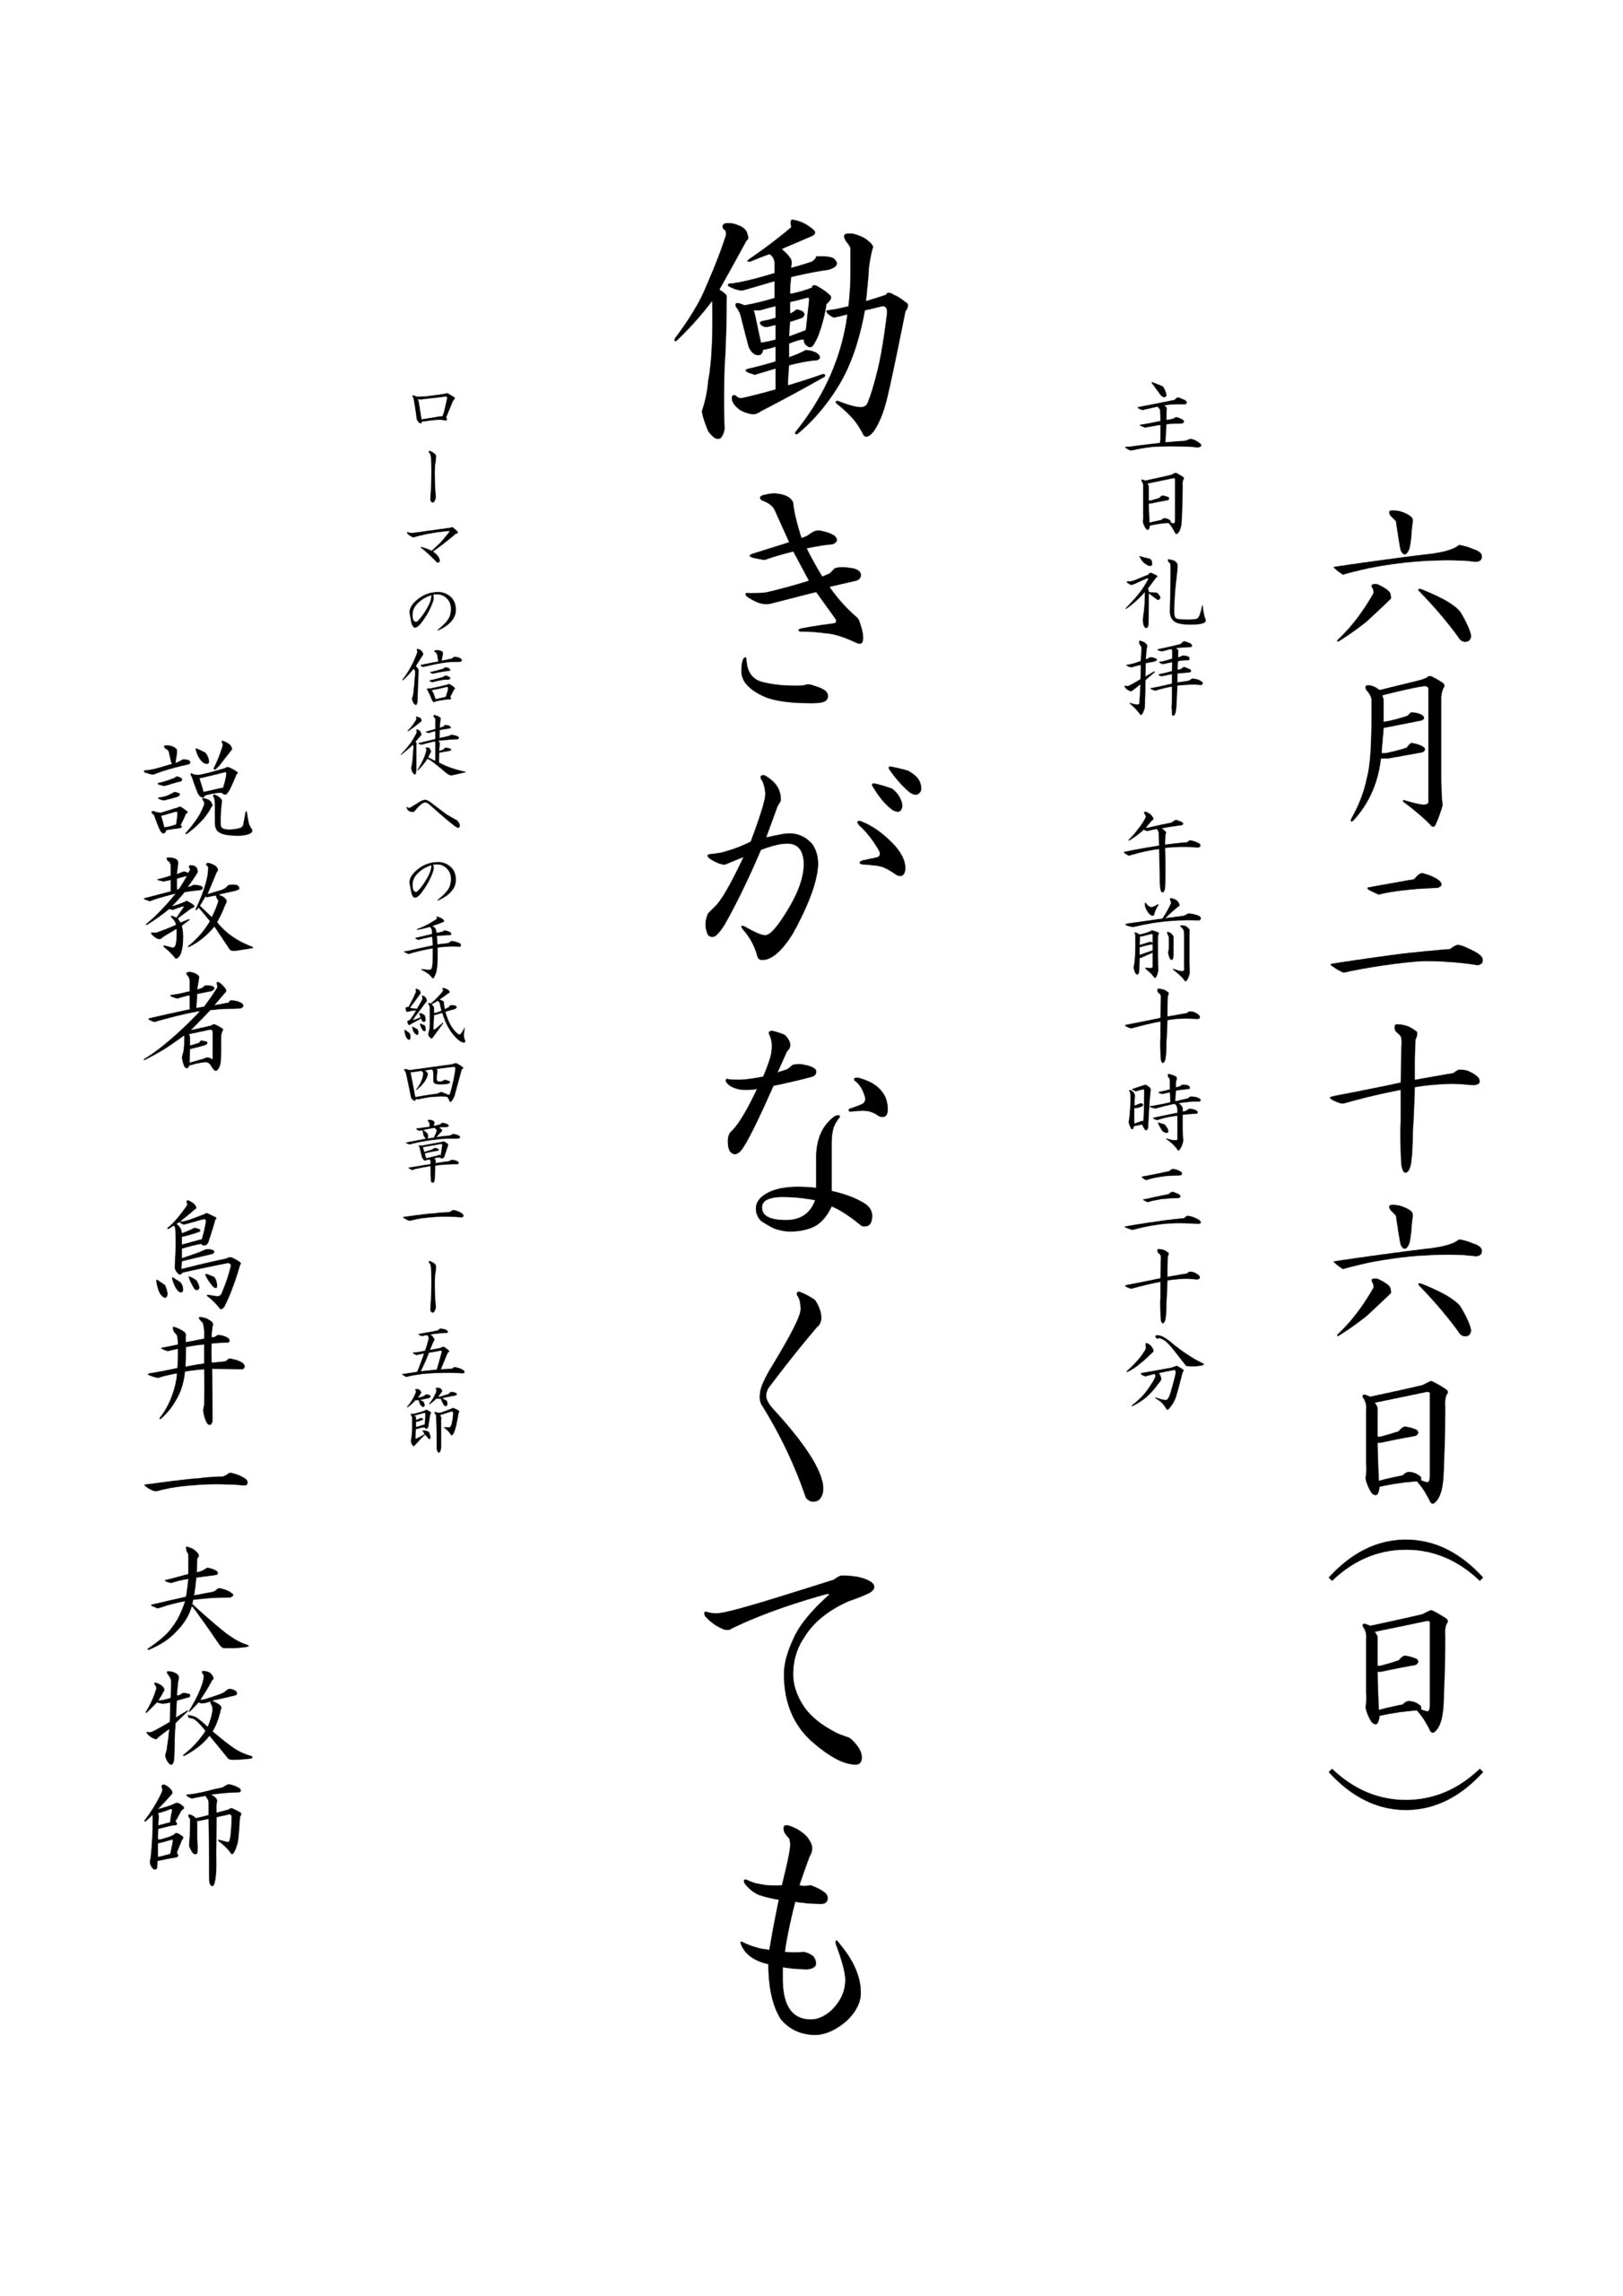 六月二十六日（日）
主日礼拝　午前十時三十分
働きがなくても
ローマの信徒への手紙四章一ー五節
説教者　烏井一夫牧師